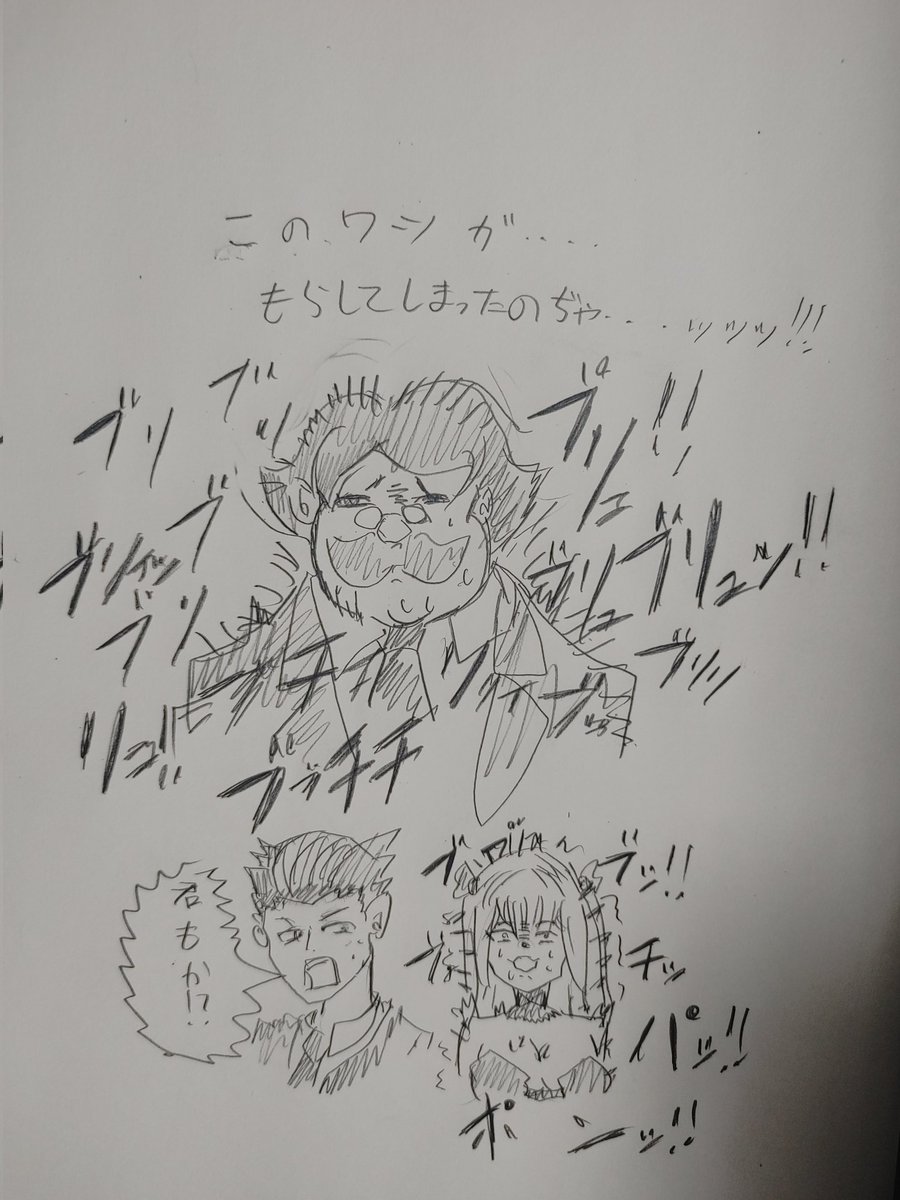 このワシが‥‥
もらしてしまったのぢゃ‥‥ッッッ!!!
ブリ
ブッ
ブリュ!!
ブリイッ
ブ
ブリュ
ブリュッ!!
ブリ
ブリッ
リュ!!
ブチ
ブブチチ
君もか!?
ブ
ブッ!!
チッ
パッ!!
ポンッ!!